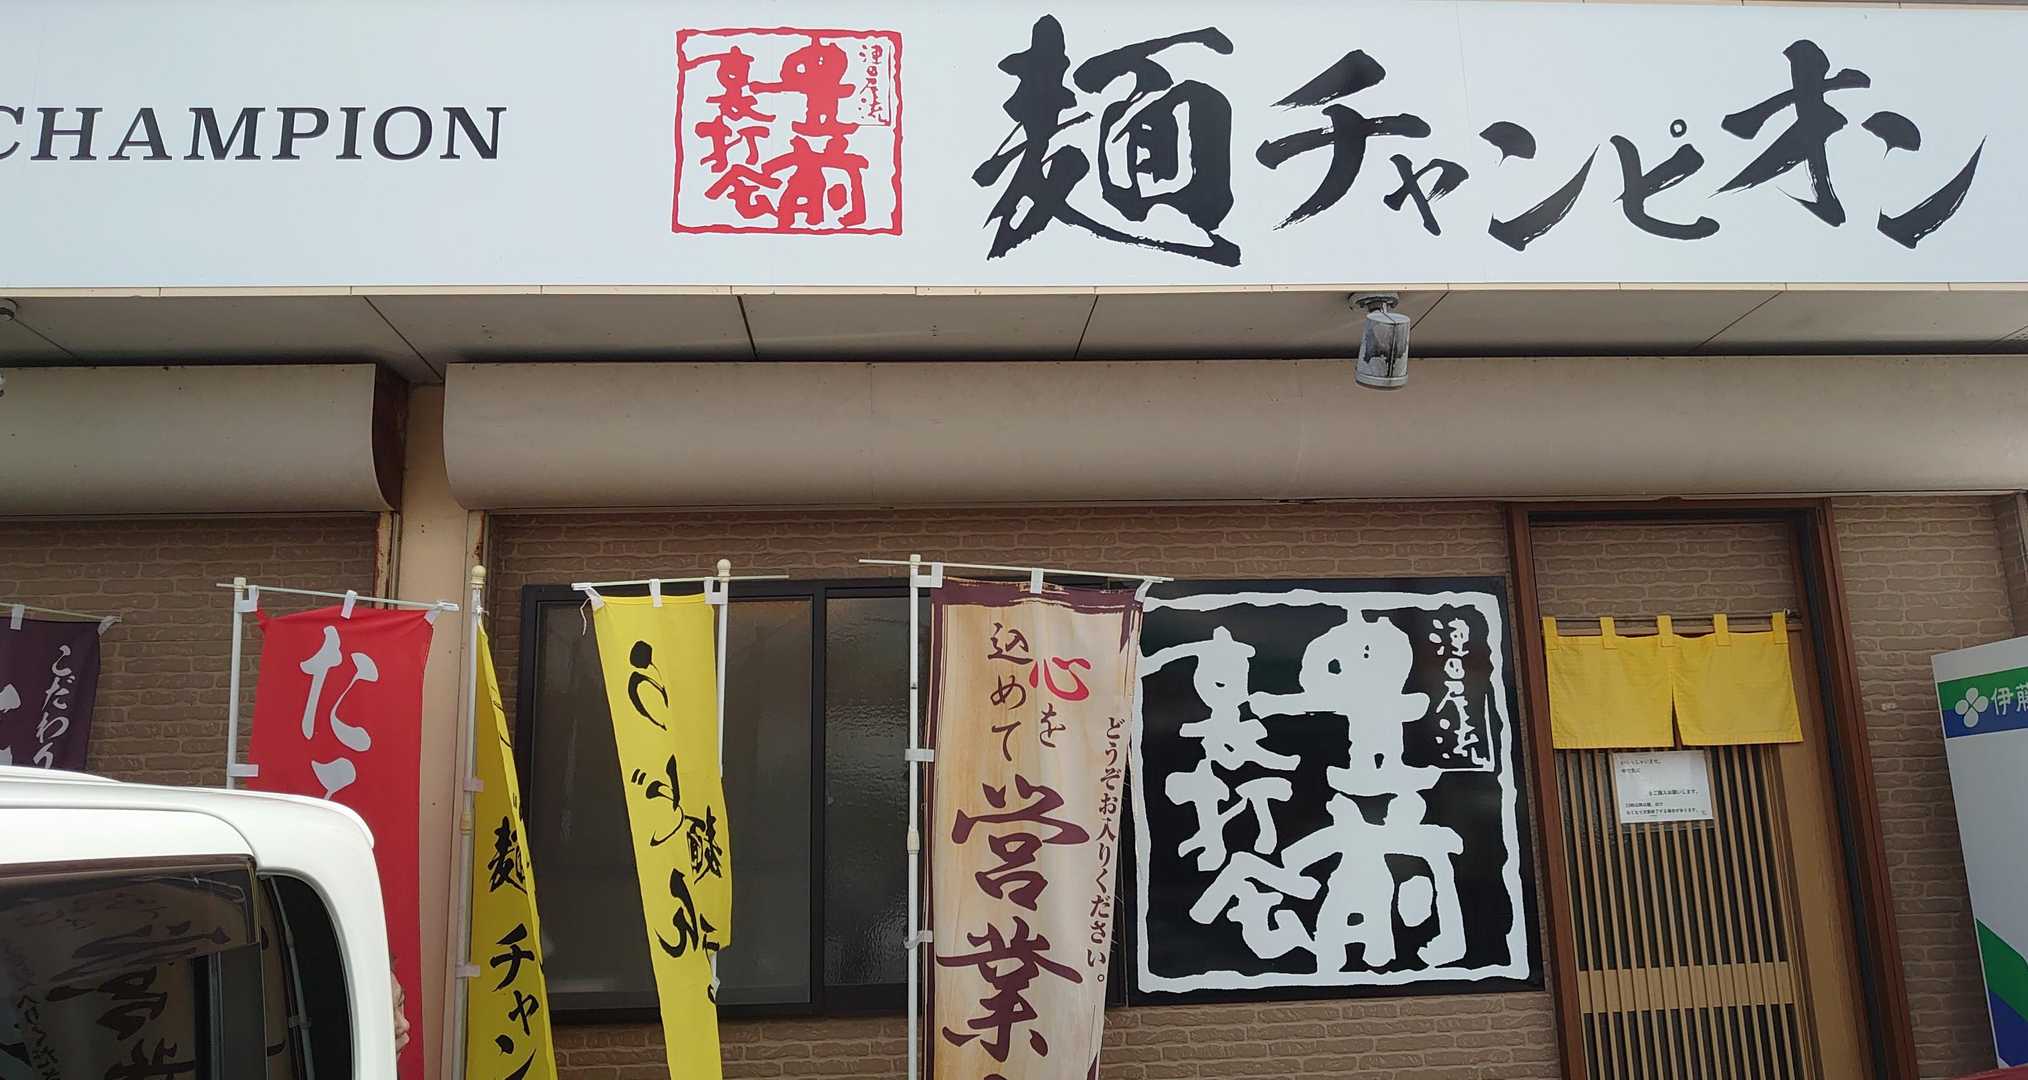 CHAMPION
津田屋流
豊前
裏打会
麺チャンピオン
こだわり
た
麺チャン
うどん
麺
心を
込めて
営業
どうぞお入りください。
津田屋流
豊前
裏打会
伊藤